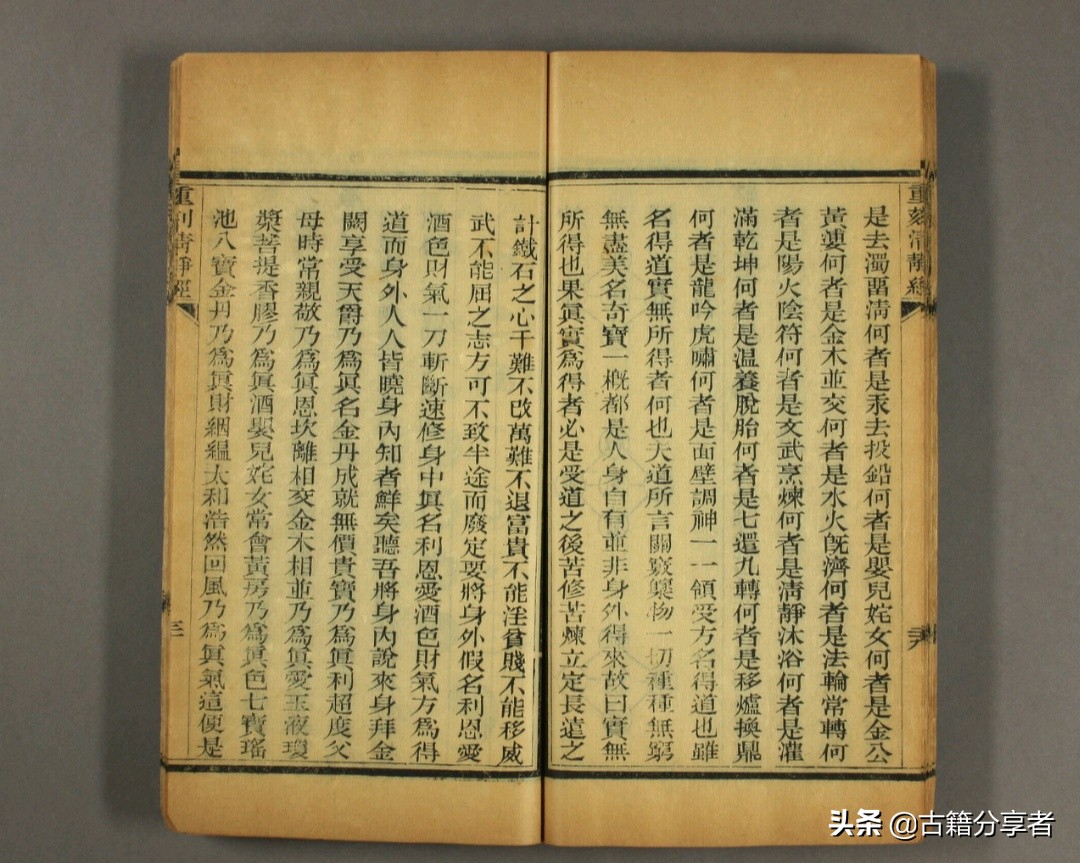 是去濁畱淸何者是汞去投鉛何者是嬰兒姹女何者是金公
黃𡜊何者是金木並交何者是水火旣濟何者是法輪常轉何
者是陽火陰符何者是文武烹煉何者是淸靜沐浴何者是灌
滿乾坤何者是温養脫胎何者是七還九轉何者是移爐換鼎
何者是龍吟虎嘯何者是面壁調神一一領受方名得道也雖
名得道實無所得者何也大道所言關竅藥物一切種種無窮
無盡美名奇寶一概都是人身自有並非身外得來故曰實無
所得也果眞實爲得者必是受道之後苦修苦煉立定長遠之
計鐵石之心千難不改萬難不退富貴不能淫貧賤不能移威
武不能屈之志方可不致半途而廢定要將身外假名利恩愛
酒色財氣一刀斬斷速修身中眞名利恩愛酒色財氣方爲得
道而身外人人皆曉身內知者鮮矣聽吾將身內說來身拜金
闕享受天爵乃爲眞名金丹成就無價貴寶乃爲眞利超度父
母時常親敬乃爲眞恩坎離相交金木相並乃爲眞愛玉液瓊
漿菩提香膠乃爲眞酒嬰兒姹女常會黃房乃爲眞色七寶瑤
池八寶金丹乃爲眞財絪縕太和浩然回風乃爲眞氣這便是
重刻淸靜經
重刊淸靜經
头条 @古籍分享者